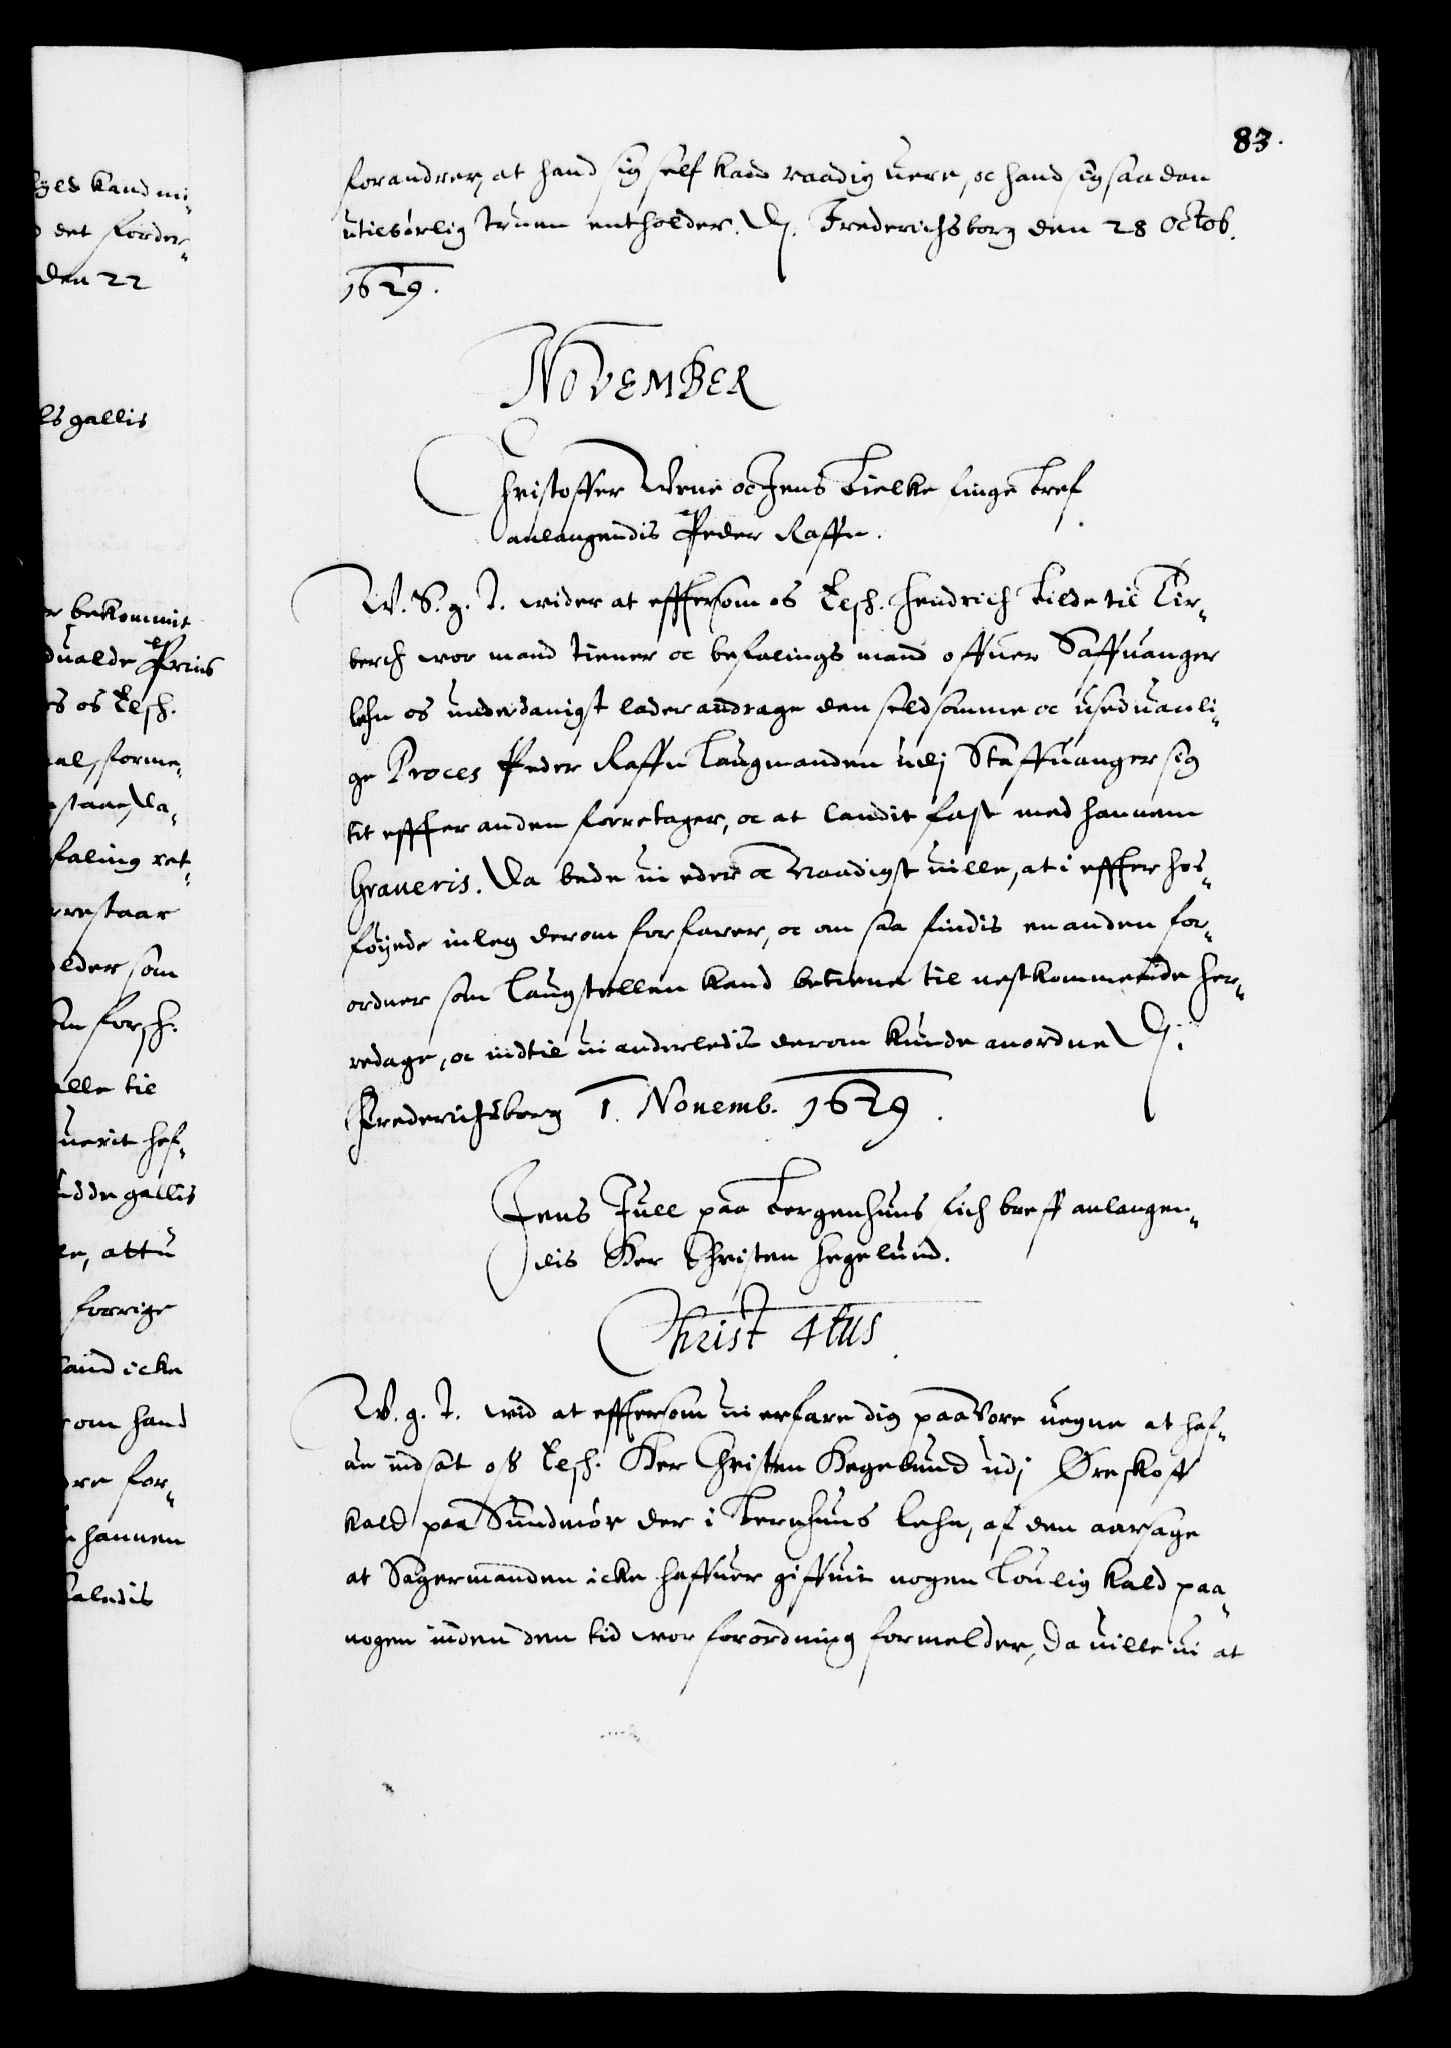 83.
forandrer, at hand sig self kand raadig uere, oc hand sig saadan
utilbørlig truen entholder. Dj. Frederichsborg den 28 Octob.
1629.
NOVEMBER
Christoffer Urne oc Jens Bielke finge bref
anlangendis Peder Raffn.
W. S. g. T. wider at effersom os Elsch. Hendrich Bilde til Bir¬
berch wor mand tiener oc befalings mand offuer Staffuanger
lehn os underdanigst lader andrage den seldsomme oc useduanli¬
ge Proces Peder Raffn Laugmanden udj Staffuanger sig
tit effter anden foretager, oc at landit fast med hannem
graueris. Da bede ui eder oc naadigst uille, at i effter hos¬
føyede inleg derom forfarer, oc om saa findis en anden for¬
ordner som Laugstollen kand betiene til nestkommende her¬
redage, oc indtil ui anderledis derom kunde anordne Dj.
Frederichsborg 1. Nouemb. 1629.
Jens Jull paa Bergenhuus fich breff anlangen¬
dis Her Christen Hegelund.
Christ 4tus
W. g. T. wid at effersom ui erfare dig paa Vore uegne at haf¬
ue indsat oss Elsch. Her Christen Hegelund udj Ørskoff
kald paa Sundmør der i Bernhuus lehn, af den aarsage
at Sagermanden icke haffuer giffuit nogen loulig kald paa
nogen inden den tid wor forordning formelder, da uille ui at
yld kand mi¬
det fordr¬
den 22
ls gallis
bekommit
dualde Prins
os Elsch.
al, forme¬
staae, da¬
faling ret¬
restaar
elder som
forsch.
alle til
uerit hef¬
udde gallis
le, attu
forrige
land icke
om hand
dre for¬
hannem
kaledis